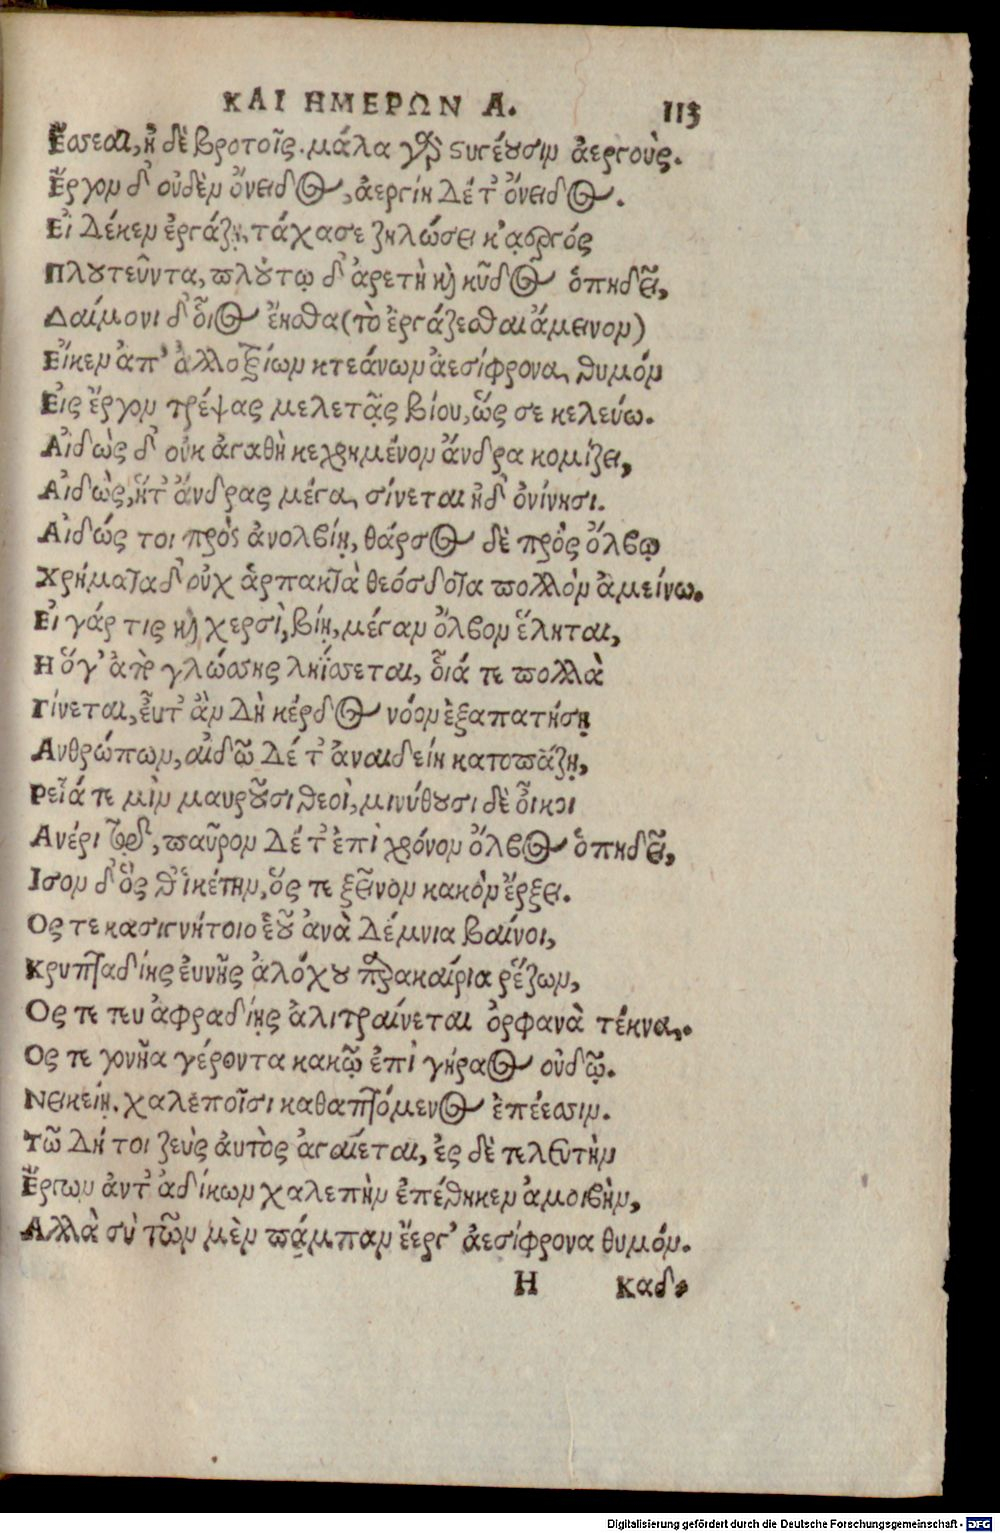 ΚΑΙ ΗΜΕΡΩΝ Α. 113
Ἔσσεαι, ἠδὲ βροτοῖς. μάλα γὰρ στυγέουσιν ἀεργούς.
Ἔργον δ' οὐδὲν ὄνειδος, ἀεργίη δέ τ' ὄνειδος.
Εἰ δέ κεν ἐργάζῃ, τάχα σε ζηλώσει κ' ἀεργός
Πλουτεῦντα, πλούτῳ δ' ἀρετὴ καὶ κῦδος ὀπηδεῖ,
Δαίμονι δ' οἷος ἔησθα (τὸ ἐργάζεσθαι ἄμεινον)
Εἴ κεν ἀπ' ἀλλοτρίων κτεάνων ἀεσίφρονα θυμόν
Εἰς ἔργον τρέψας μελετᾷς βίου, ὥς σε κελεύω.
Αἰδὼς δ' οὐκ ἀγαθὴ κεχρημένον ἄνδρα κομίζει,
Αἰδὼς, ἥτ' ἄνδρας μέγα σίνεται ἠδ' ὀνίνησι.
Αἰδώς τοι πρὸς ἀνολβίῃ, θάρσος δὲ πρὸς ὄλβῳ
Χρήματα δ' οὐχ ἁρπακτὰ θεόσδοτα πολλὸν ἀμείνω.
Εἰ γάρ τις καὶ χερσὶ, βίῃ, μέγαν ὄλβον ἕληται,
Η ὅγ' ἀπὸ γλώσσης ληΐσσεται, οἷά τε πολλὰ
Γίνεται, εὖτ' ἂν δὴ κέρδος νόον ἐξαπατήσῃ
Ανθρώπων, αἰδῶ δέ τ' ἀναιδείη κατοπάζῃ,
Ρεῖά τε μὶν μαυροῦσι θεοὶ, μινύθουσι δὲ οἶκοι
Ανέρι τῷδ', παῦρον δέ τ' ἐπὶ χρόνον ὄλβος ὀπηδεῖ,
Ισον δ' ὅς θ' ἱκέτην, ὅς τε ξεῖνον κακὸν ἔρξει.
Ος τε κασιγνήτοιο ἑοῦ ἀνὰ δέμνια βαίνοι,
Κρυπταδίης εὐνῆς ἀλόχου παρακαίρια ῥέζων,
Ος τε τευ ἀφραδίῃς ἀλιτραίνεται ὀρφανὰ τέκνα.
Ος τε γονῆα γέροντα κακῷ ἐπὶ γήραος οὐδῷ.
Νεικείῃ. χαλεποῖσι καθαπτόμενος ἐπέεσσιν.
Τῶ δή τοι ζεὺς αὐτὸς ἀγαίεται, ἐς δὲ τελευτὴν
Ἔργων ἀντ' ἀδίκων χαλεπὴν ἐπέθηκεν ἀμοιβὴν,
Αλλὰ σὺ τῶν μὲν πάμπαν ἔεργ' ἀεσίφρονα θυμόν.
H Καδ
Digitalisierung gefördert durch die Deutsche Forschungsgemeinschaft - DFG